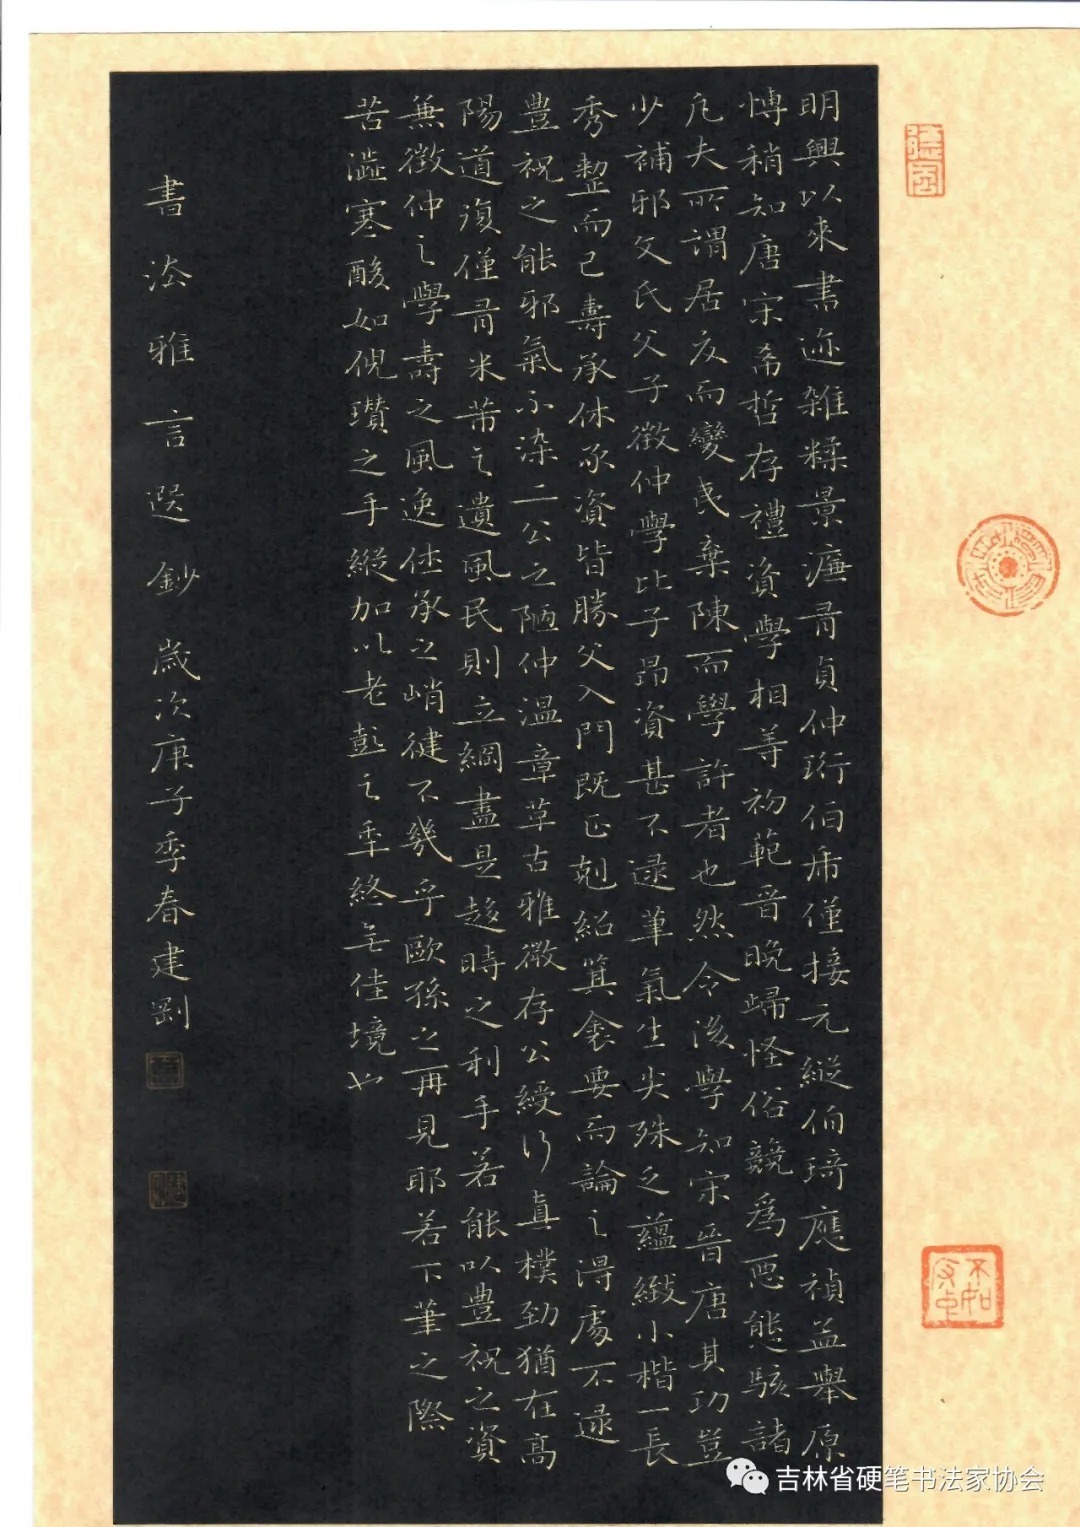 明興以來書迹雜糅景濂有貞仲珩伯虎僅接元縱伯琦應禎益舉原
博稍知唐宋希哲存禮資學相等初範晉晚歸怪俗競爲惡態駭諸
凡夫所謂居夏而變夷棄陳而學許者也然令後學知宗晉唐其功豈
少補邪文氏父子徵仲學比子昂資甚不逮筆氣生尖殊乏蘊緻小楷一長
秀整而已壽承休承資皆勝父入門既正剋紹箕裘要而論之得處不逮
豊祝之能邪氣不染二公之陋仲溫章草古雅微存公綬行真樸勁猶在高
陽道復僅有米芾之遺風民則立綱盡是趍時之利手若能以豊祝之資
兼徵仲之學壽之風逸休承之峭健不幾乎歐孫之再見耶若下筆之際
苦澁寒酸如倪瓚之手縱加以老彭之年終無佳境也
書法雅言選鈔 歲次庚子季春建剛
不如守中
吉林省硬笔书法家协会